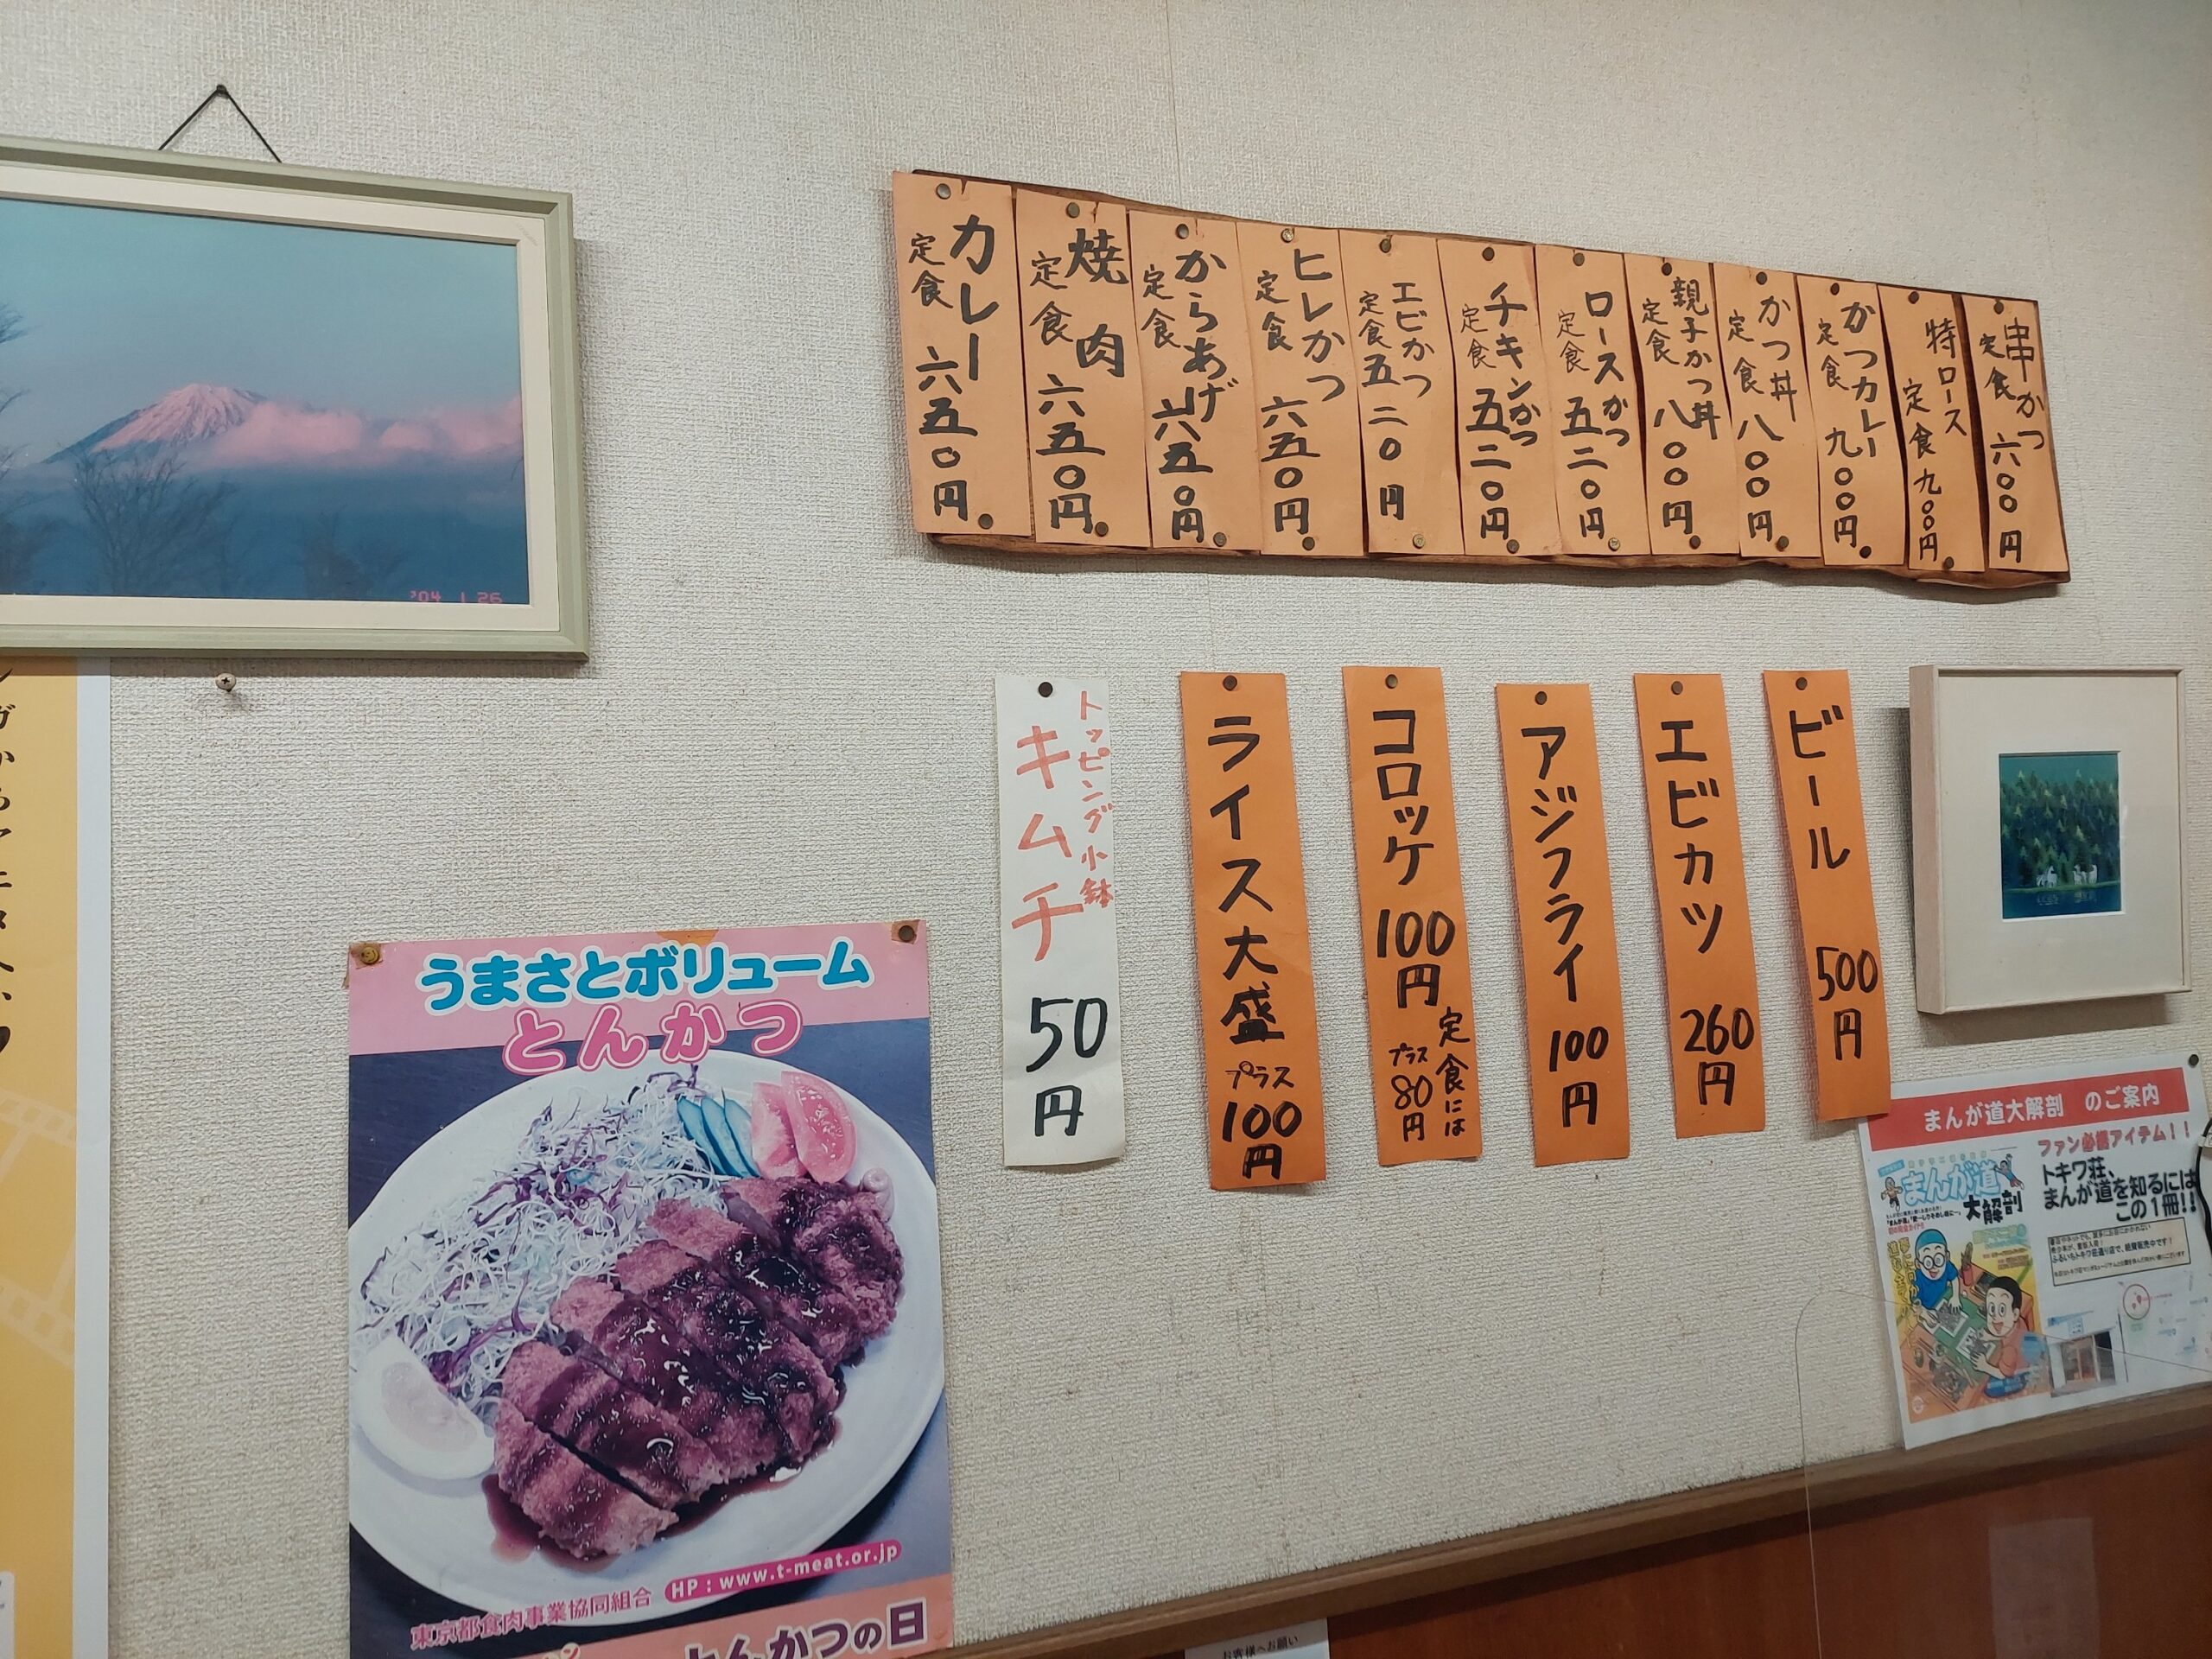 カレー定食 六五〇円
焼肉定食 六五〇円
からあげ定食 六五〇円
ヒレかつ定食 六五〇円
エビかつ定食 五二〇円
チキンかつ定食 五二〇円
ロースかつ定食 五二〇円
親子かつ丼定食 八〇〇円
かつ丼定食 八〇〇円
かつカレー定食 九〇〇円
特ロース定食 九〇〇円
串かつ定食 六〇〇円
'04 1 26
トッピング小鉢
キムチ 50円
ライス大盛 プラス100円
コロッケ 100円
定食には
プラス80円
アジフライ 100円
エビカツ 260円
ビール 500円
うまさとボリューム
とんかつ
HP：www.t-meat.or.jp
東京都食肉事業協同組合
とんかつの日
まんが道大解剖 のご案内
ファン必携アイテム！！
トキワ荘、
まんが道を知るには
この1冊!!
まんが道
大解剖
お客様へお願い